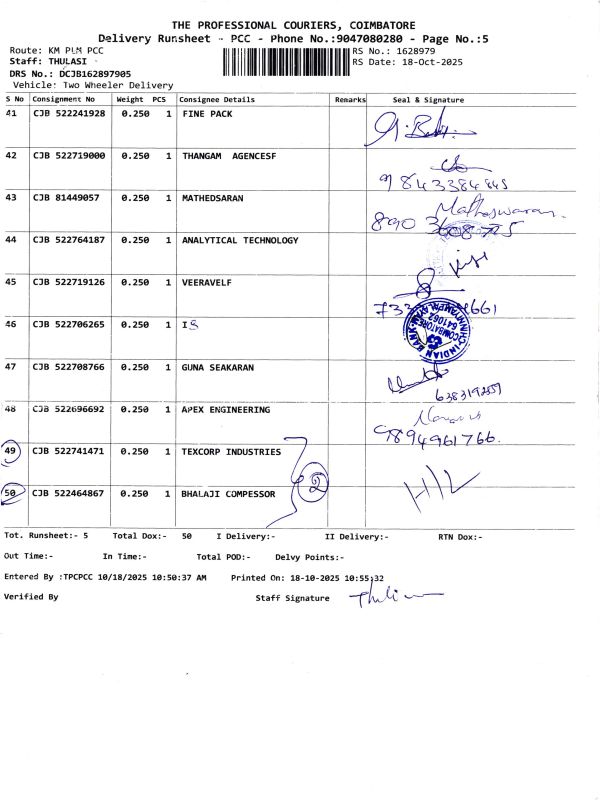 THE PROFESSIONAL COURIERS, COIMBATORE
Delivery Runsheet - PCC - Phone No.:9047080280 - Page No.:5
Route: KM PLM PCC RS No.: 1628979
Staff: THULASI RS Date: 18-Oct-2025
DRS No.: DCJB162897905
Vehicle: Two Wheeler Delivery
S No Consignment No Weight PCS Consignee Details Remarks Seal & Signature
41 CJB 522241928 0.250 1 FINE PACK
42 CJB 522719000 0.250 1 THANGAM AGENCESF
9843384845
43 CJB 81449057 0.250 1 MATHEDSARAN Matheswaran
890
44 CJB 522764187 0.250 1 ANALYTICAL TECHNOLOGY
45 CJB 522719126 0.250 1 VEERAVELF
46 CJB 522706265 0.250 1 IS
INDIAN BANK
COIMBATORE
641062
47 CJB 522708766 0.250 1 GUNA SEAKARAN
48 CJB 522696692 0.250 1 APEX ENGINEERING
9894961766.
49 CJB 522741471 0.250 1 TEXCORP INDUSTRIES
50 CJB 522464867 0.250 1 BHALAJI COMPESSOR
2
H/L
Tot. Runsheet:- 5 Total Dox:- 50 I Delivery:- II Delivery:- RTN Dox:-
Out Time:- In Time:- Total POD:- Delvy Points:-
Entered By :TPCPCC 10/18/2025 10:50:37 AM Printed On: 18-10-2025 10:55:32
Verified By Staff Signature